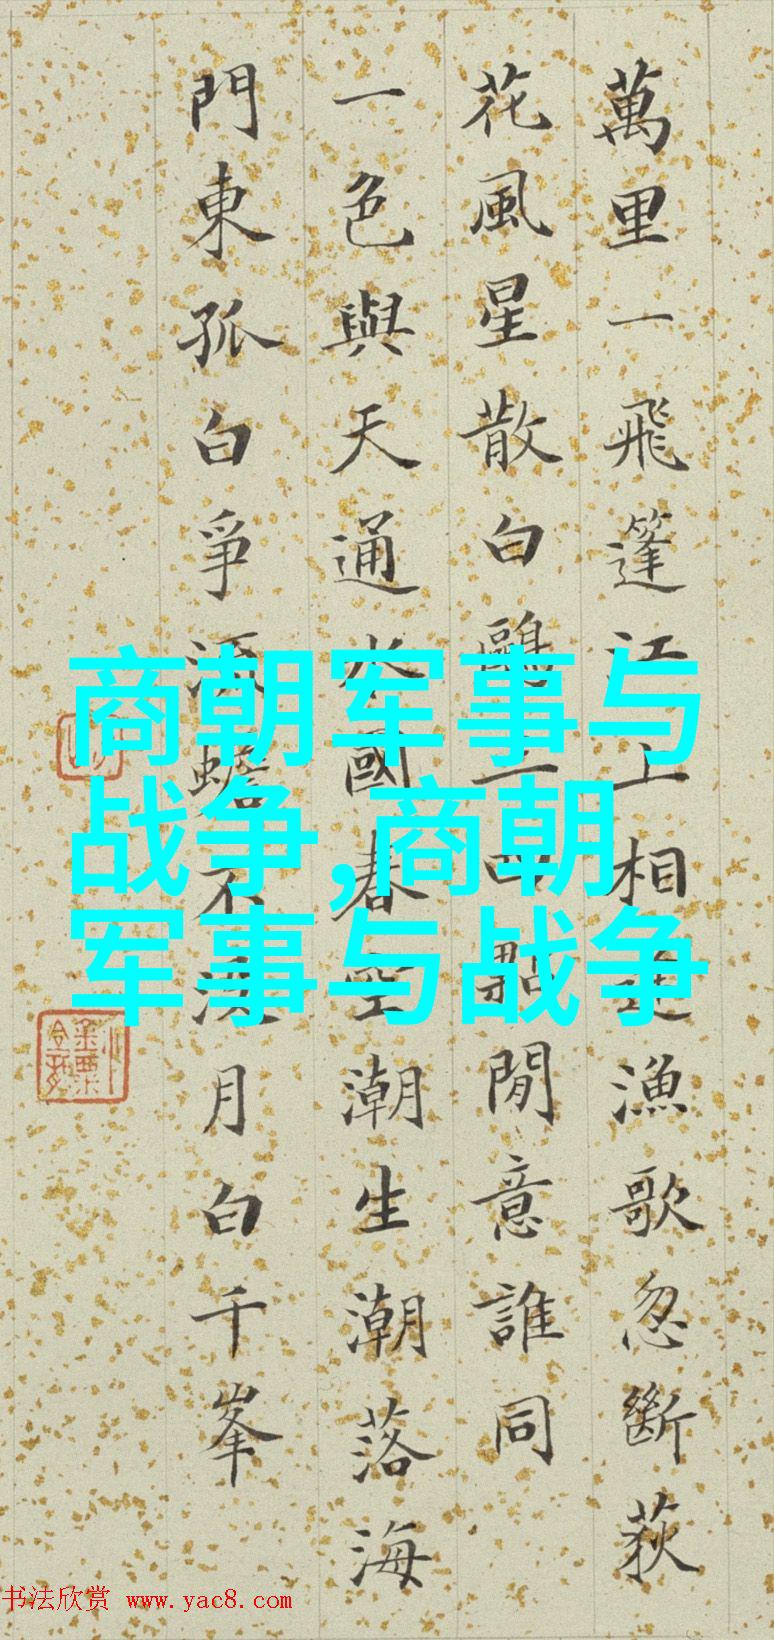 萬里一飛篷江上相逢漁歌忽斷荻
花風星散白鷗三四點閒意誰同
一色與天通水國春空潮生潮落海
門東孤白爭流蟾不沒月白千峯
商朝军事与
战争,商朝
军事与战争
书法欣赏 www.yac8.com